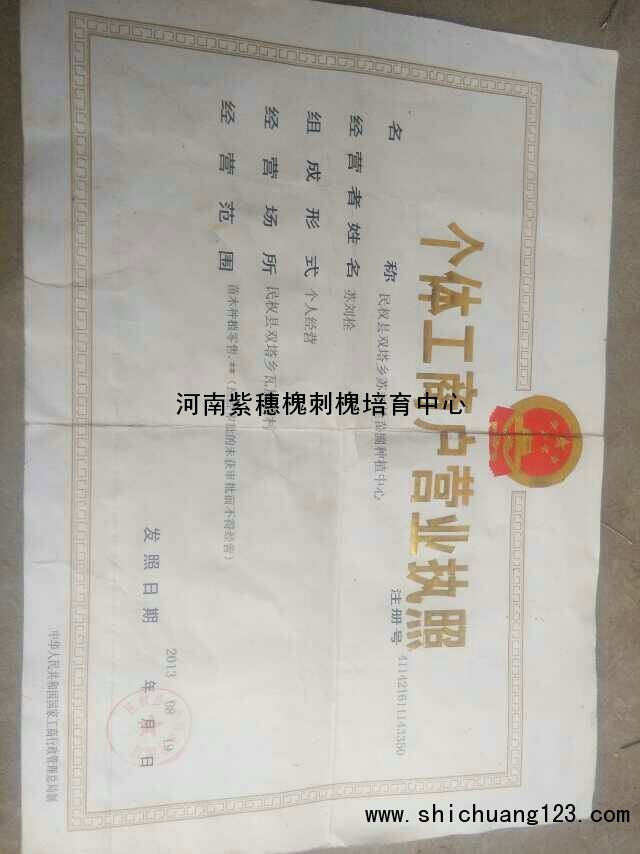 个体工商户营业执照
注册号 411421611143350
名称 民权县双塔乡苏 苗圃种植中心
经营者姓名 苏刘栓
组成形式 个人经营
经营场所 民权县双塔乡瓦 村
经营范围 苗木种植零售.**( 批的未获审批前不得经营)
发照日期 2013 年 08 月 19 日
中华人民共和国国家工商行政管理总局制
河南紫穗槐刺槐培育中心
www.shichuang123.com